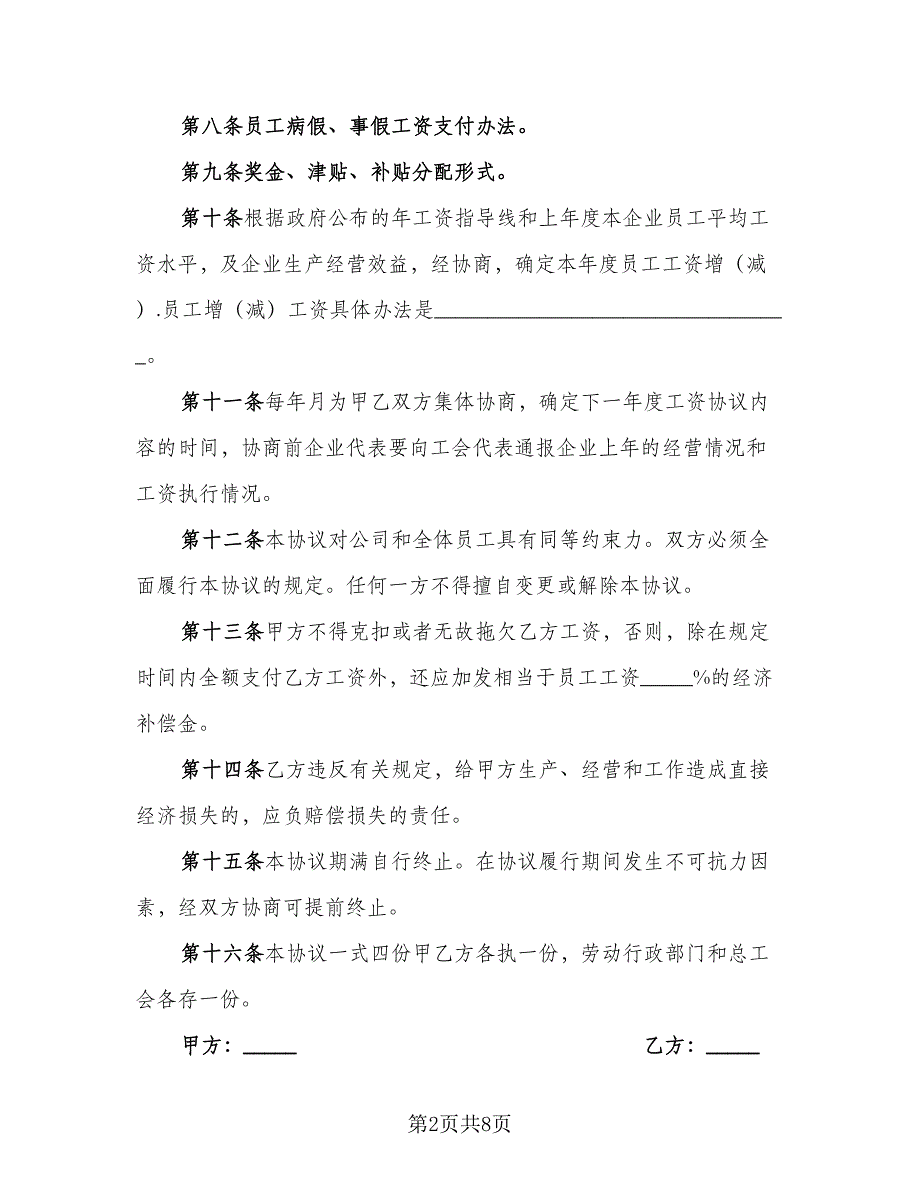 第八条员工病假、事假工资支付办法。
第九条奖金、津贴、补贴分配形式。
第十条根据政府公布的年工资指导线和上年度本企业员工平均工
资水平，及企业生产经营效益，经协商，确定本年度员工工资增（减
）.员工增（减）工资具体办法是_________________________________
_。
第十一条每年月为甲乙双方集体协商，确定下一年度工资协议内
容的时间，协商前企业代表要向工会代表通报企业上年的经营情况和
工资执行情况。
第十二条本协议对公司和全体员工具有同等约束力。双方必须全
面履行本协议的规定。任何一方不得擅自变更或解除本协议。
第十三条甲方不得克扣或者无故拖欠乙方工资，否则，除在规定
时间内全额支付乙方工资外，还应加发相当于员工工资_____%的经济
补偿金。
第十四条乙方违反有关规定，给甲方生产、经营和工作造成直接
经济损失的，应负赔偿损失的责任。
第十五条本协议期满自行终止。在协议履行期间发生不可抗力因
素，经双方协商可提前终止。
第十六条本协议一式四份甲乙方各执一份，劳动行政部门和总工
会各存一份。
甲方：_____ 乙方：_____
第2页共8页